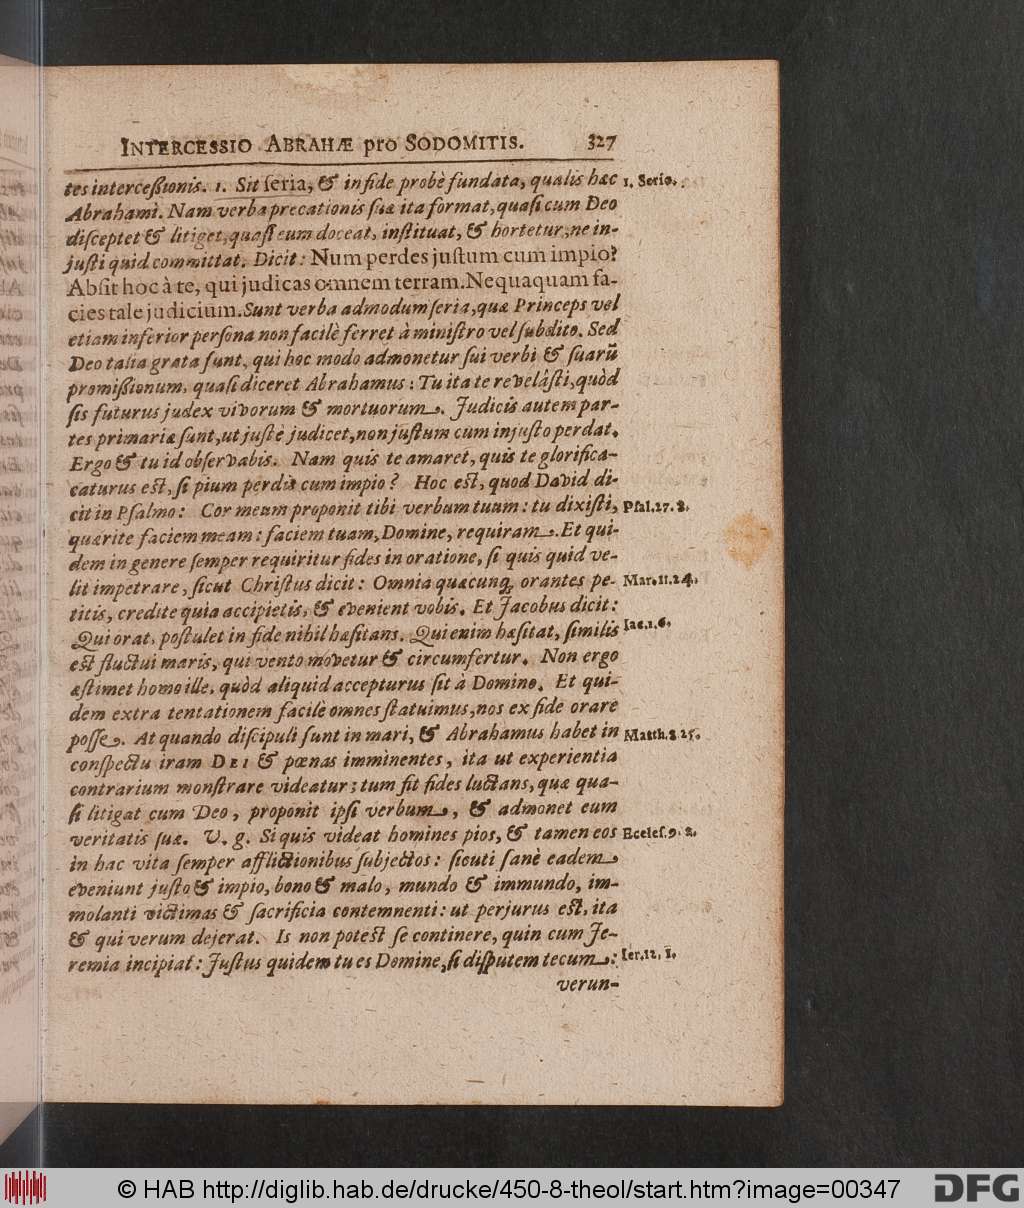 INTERCESSIO ABRAHÆ pro SODOMITIS. 327
tes interceßionis. 1. Sit ſeria, & in fide probè fundata, qualis hæc 1. Serio.
Abrahami. Nam verba precationis ſuæ ita format, quaſi cum Deo
diſceptet & litiget, quaſi eum doceat, inſtituat, & hortetur, ne in-
juſti quid committat. Dicit: Num perdes juſtum cum impio?
Abſit hoc à te, qui judicas omnem terram. Nequaquam fa-
cies tale judicium. Sunt verba admodum ſeria, quæ Princeps vel
etiam inferior perſona non facilè ferret à miniſtro vel ſubdito. Sed
Deo talia grata ſunt, qui hoc modo admonetur ſui verbi & ſuarū
promißionum, quaſi diceret Abrahamus: Tu ita te revelâſti, quòd
ſis futurus judex vivorum & mortuorum. Judicis autem par-
tes primariæ ſunt, ut juſtè judicet, non juſtum cum injuſto perdat.
Ergo & tu id obſervabis. Nam quis te amaret, quis te glorifica-
caturus eſt, ſi pium perdis cum impio? Hoc eſt, quod David di-
cit in Pſalmo: Cor meum proponit tibi verbum tuum: tu dixiſti, Pſal. 27. 8.
quærite faciem meam: faciem tuam, Domine, requiram. Et qui-
dem in genere ſemper requiritur fides in oratione, ſi quis quid ve-
lit impetrare, ſicut Chriſtus dicit: Omnia quæcunq; orantes pe- Mar. 11. 24.
titis, credite quia accipietis, & evenient vobis. Et Jacobus dicit:
Qui orat, poſtulet in fide nihil hæſitans. Qui enim hæſitat, ſimilis Iac. 1. 6.
eſt fluctui maris, qui vento movetur & circumfertur. Non ergo
æſtimet homo ille, quòd aliquid accepturus ſit à Domino. Et qui-
dem extra tentationem facilè omnes ſtatuimus, nos ex fide orare
poſſe. At quando diſcipuli ſunt in mari, & Abrahamus habet in Matth. 8. 25.
conſpectu iram DEI & pœnas imminentes, ita ut experientia
contrarium monſtrare videatur; tum fit fides luctans, quæ qua-
ſi litigat cum Deo, proponit ipſi verbum, & admonet eum
veritatis ſuæ. V. g. Si quis videat homines pios, & tamen eos Eccleſ. 9. 2.
in hac vita ſemper afflictionibus ſubjectos: ſicuti ſanè eadem
eveniunt juſto & impio, bono & malo, mundo & immundo, im-
molanti victimas & ſacrificia contemnenti: ut perjurus eſt, ita
& qui verum dejerat. Is non poteſt ſe continere, quin cum Je-
remia incipiat: Juſtus quidem tu es Domine, ſi diſputem tecum: Ier. 12. 1.
verun-
© HAB http://diglib.hab.de/drucke/450-8-theol/start.htm?image=00347 DFG